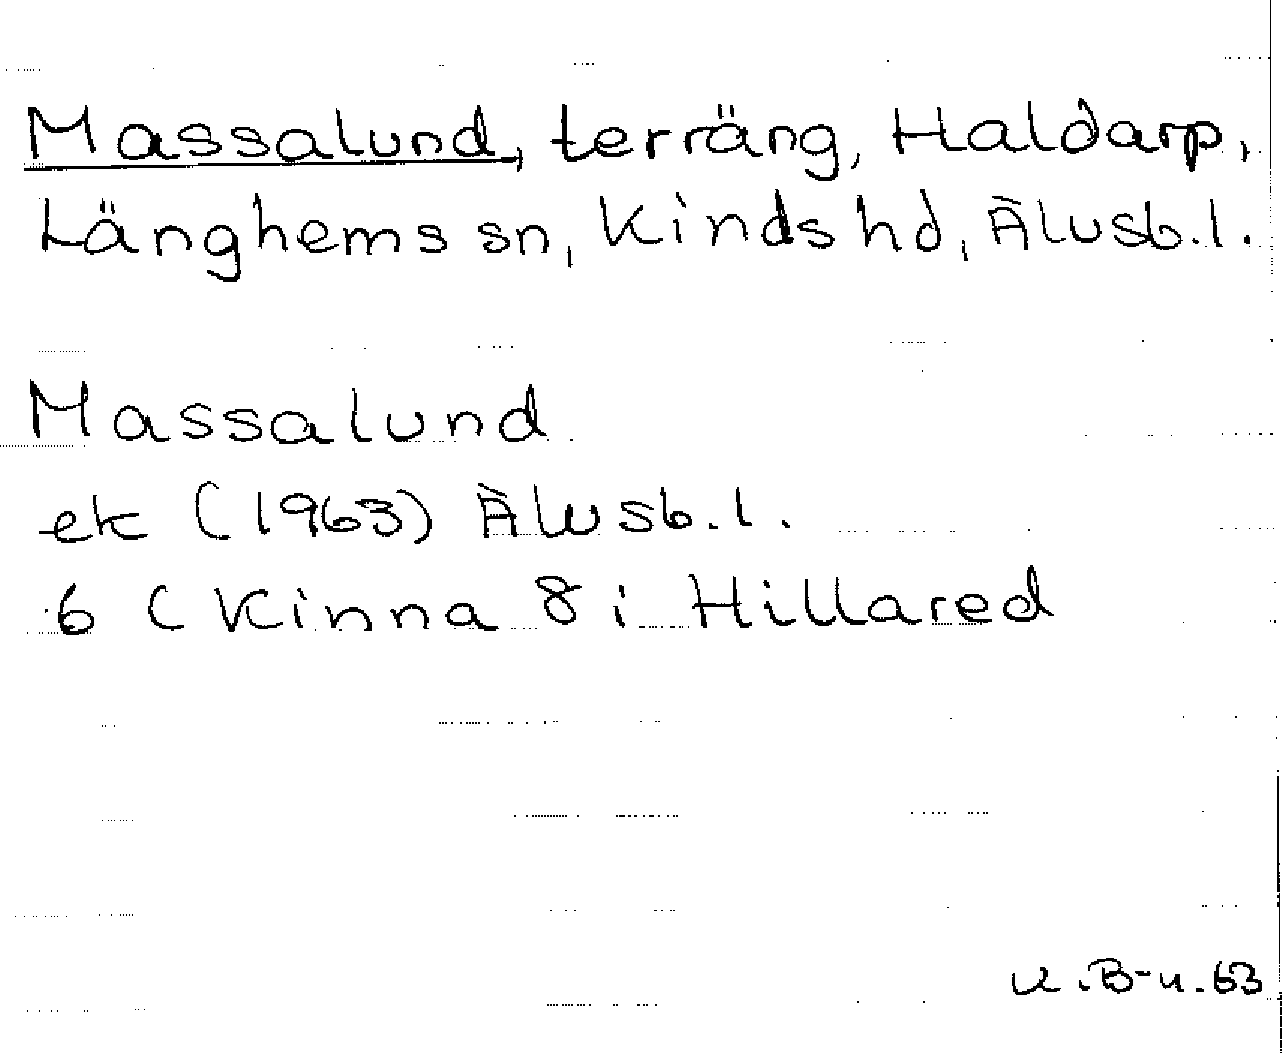 Massalund, terräng, Haldarp,
Länghems sn, Kinds hd, Älvsb.l.
Massalund
ek (1963) Älvsb.l.
6 (Kinna 8 i Hillared
K.B-n.63